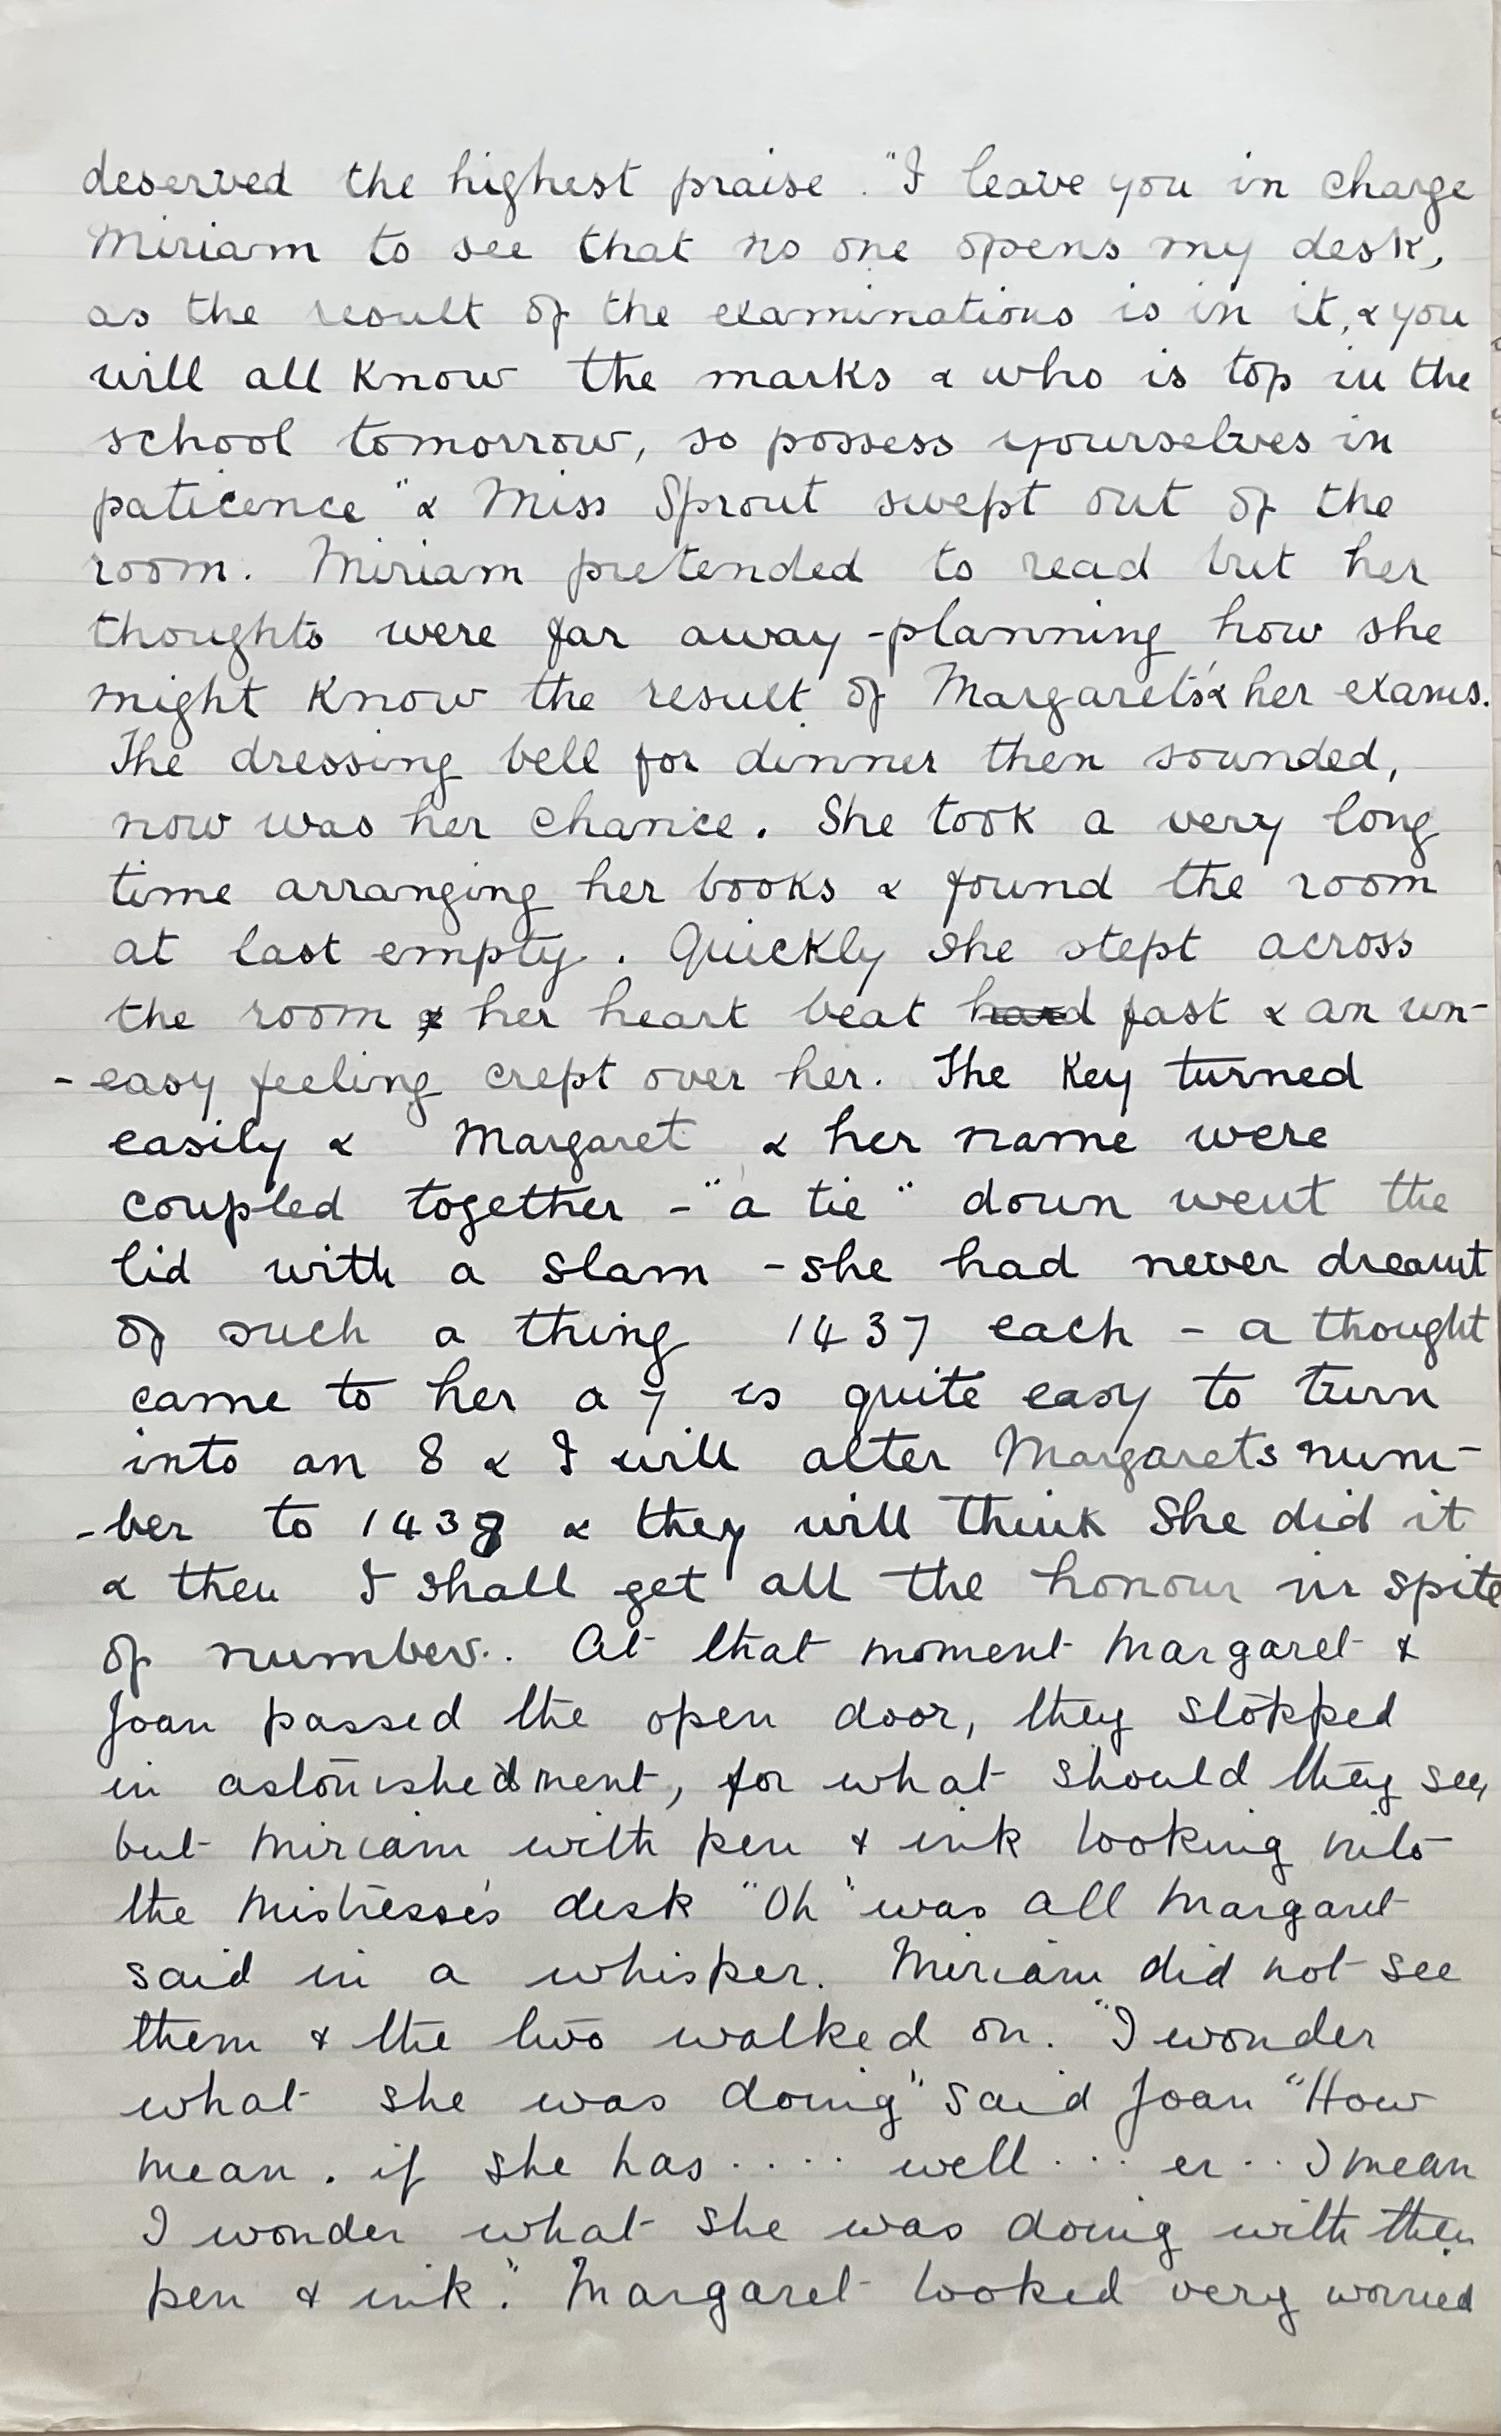 deserved the highest praise. "I leave you in charge
Miriam to see that no one opens my desk,
as the result of the examinations is in it, & you
will all know the marks & who is top in the
school tomorrow, so possess yourselves in
paticence" & Miss Sprout swept out of the
room. Miriam pretended to read but her
thoughts were far away - planning how she
might know the result of Margaret's & her exams.
The dressing bell for dinner then sounded,
now was her chance. She took a very long
time arranging her books & found the room
at last empty. Quickly she stept across
the room & her heart beat hard fast & an un-
-easy feeling crept over her. The key turned
easily & Margaret & her name were
coupled together - "a tie" down went the
lid with a slam - she had never dreamt
of such a thing 1437 each - a thought
came to her a 7 is quite easy to turn
into an 8 & I will alter Margarets num-
-ber to 1438 & they will think she did it
& then I shall get all the honour in spite
of number. At that moment Margaret &
Joan passed the open door, they stopped
in astonishedment, for what should they see,
but Miriam with pen & ink looking into
the Mistresse's desk "Oh" was all Margaret
said in a whisper. Miriam did not see
them & the two walked on. "I wonder
what she was doing" said Joan "How
mean. if she has ..... well ... er .. I mean
I wonder what she was doing with then
pen & ink." Margaret looked very worried